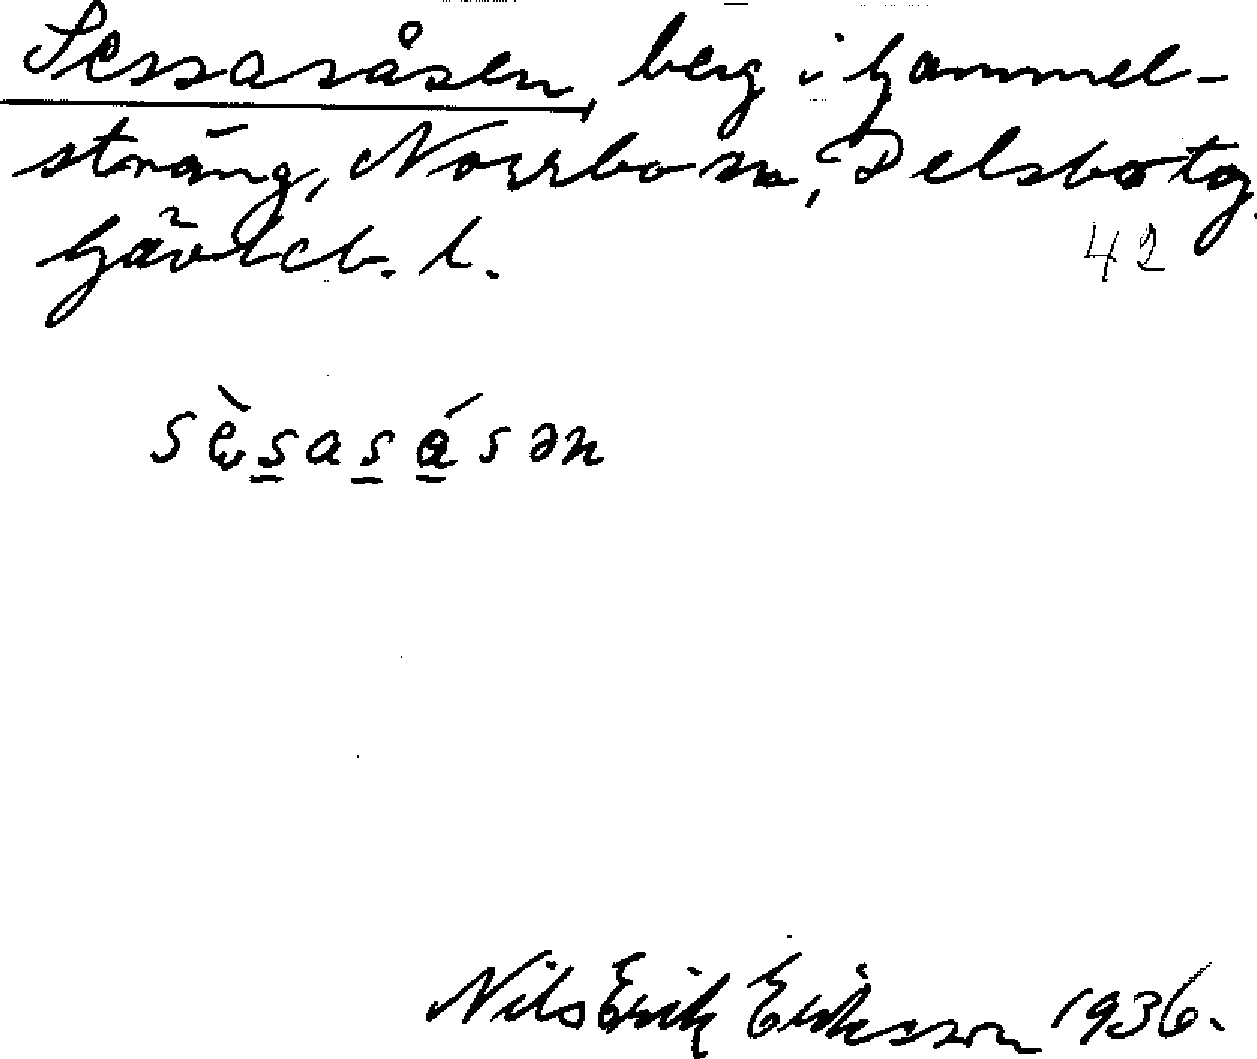 Sessasåsen, berg i Gammel-
sträng, Norrbo sn, Delsbo tg.
Gävleb. l.
42
sèsasásən
Nils Erik Eriksson 1936.